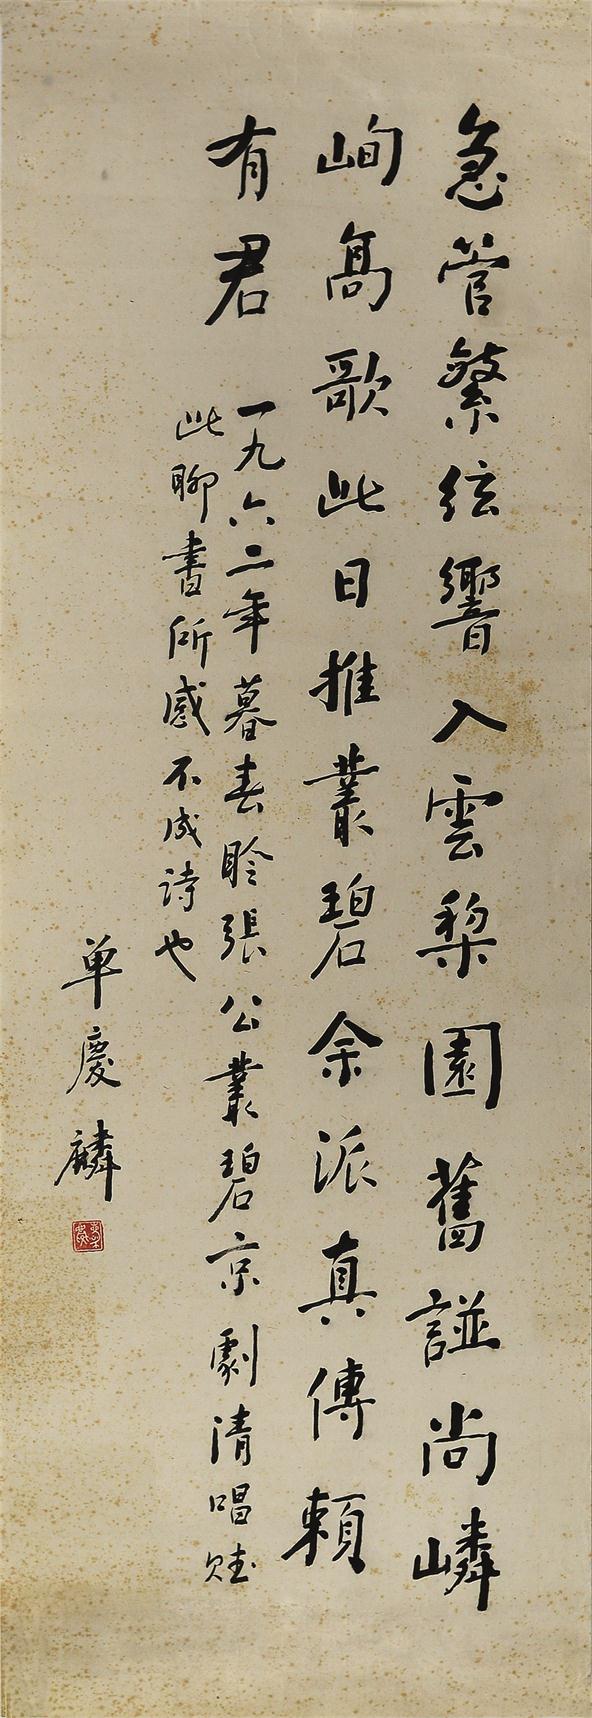 急管繁弦響入雲梨園舊謚尚嶙
峋高歌此日推叢碧余派真傳賴
有君
一九六二年暮春聆張公叢碧京劇清唱賦
此聊書所感不成詩也
单慶麟